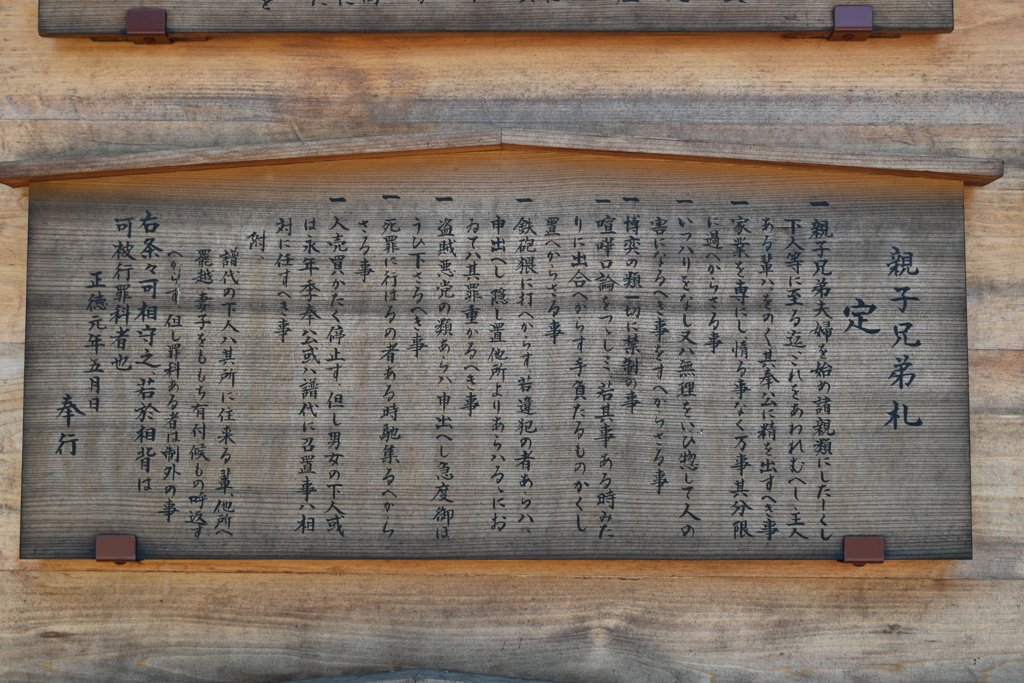 親子兄弟札
定
一 親子兄弟夫婦を始め諸親類にしたしくし
下人等に至る迄これをあわれむへし主人
ある輩ハをのく其奉公に精を出すへき事
一 家業を専にし惰る事なく万事其分限
に過へからさる事
一 いつハりをなし又ハ無理をいひ惣して人の
害になるへき事をすへからさる事
一 博奕の類一切に禁制の事
一 喧嘩口論をつゝしミ若其事ある時みた
りに出合へからす手負たるものかくし
置へからさる事
一 鉄砲猥に打へからす若違犯の者あらハ
申出へし隠し置他所よりあらハるゝにお
ゐてハ其罪重かるへき事
一 盗賊悪党の類あらハ申出へし急度御ほ
うひ下さるへき事
一 死罪に行はるの者ある時馳集るへから
さる事
一 人売買かたく停止す但し男女の下人或
は永年季奉公或ハ譜代に召置事ハ相
対に任すへき事
附
譜代の下人ハ其所に住来る輩他所へ
罷越妻子をももち有付候もの呼返す
へからす但し罪科ある者は制外の事
右条々可相守之若於相背は
可被行罪科者也
正徳元年五月日
奉行